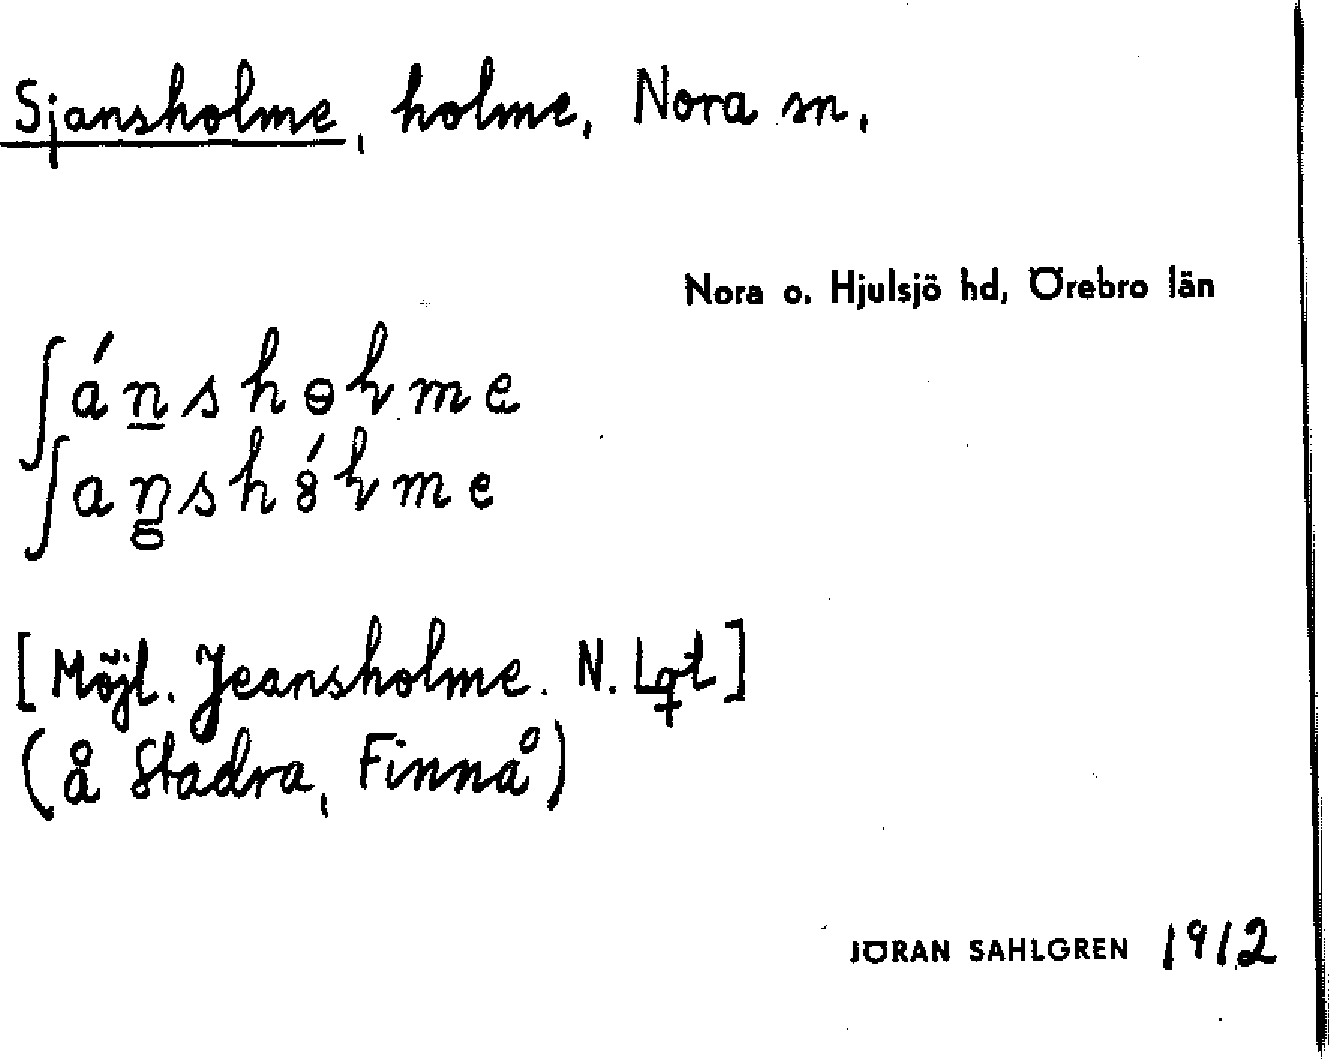 Sjansholme, holme, Nora sn,
Nora o. Hjulsjö hd, Örebro län
ʃánshɵlme
ʃanshólme
[Möjl. Jeansholme. N. Lgt]
(å Stadra, Finnå)
JÖRAN SAHLGREN 1912